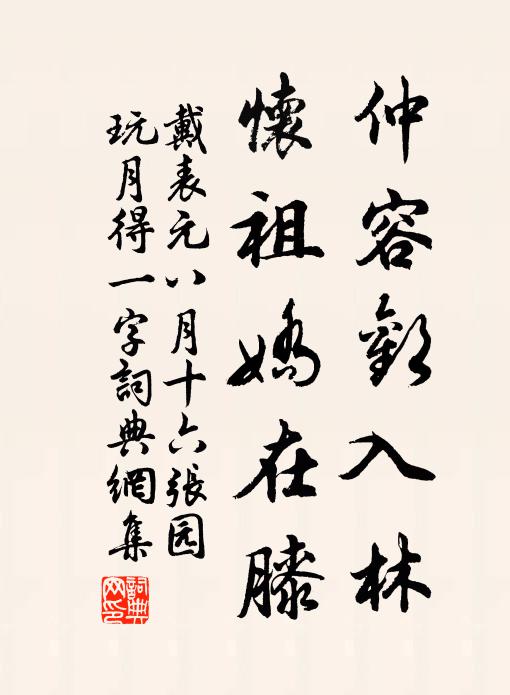 仲容歡入林
懷祖嬌在膝
戴表元八月十六張园
玩月得一字詞典網集
詞典网印